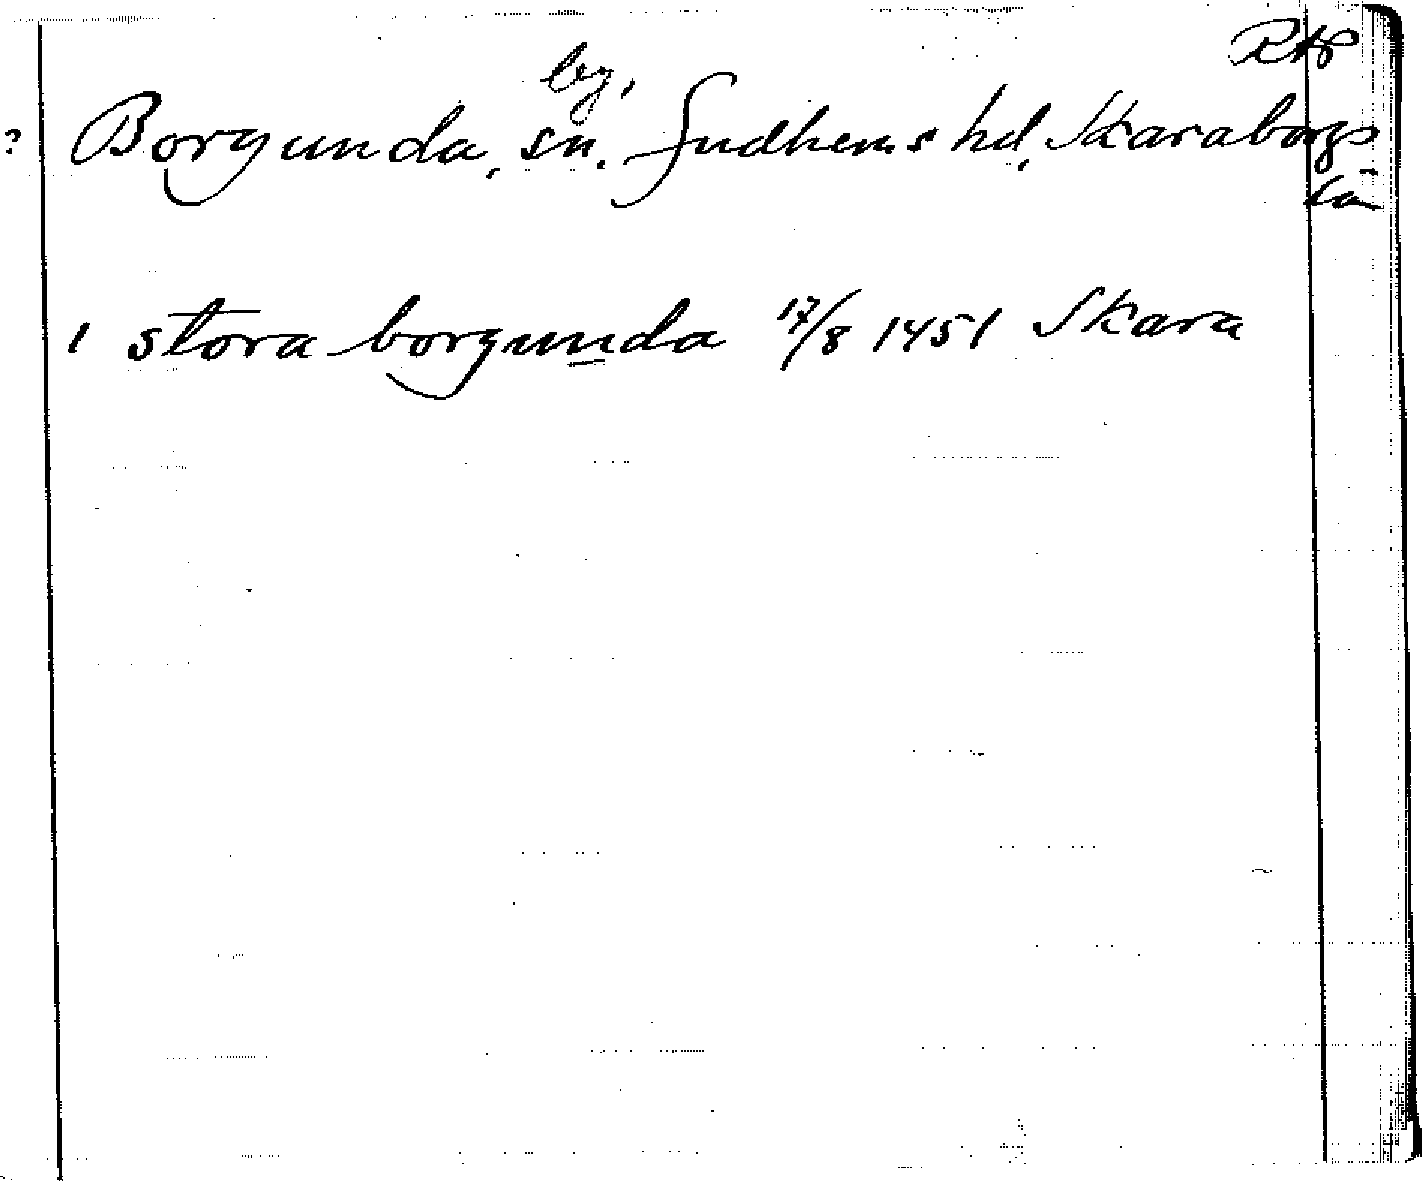 by,
? Borgunda, sn. Gudhems hd, Skaraborgs
län
1 stora borgunda 17/8 1451 Skara